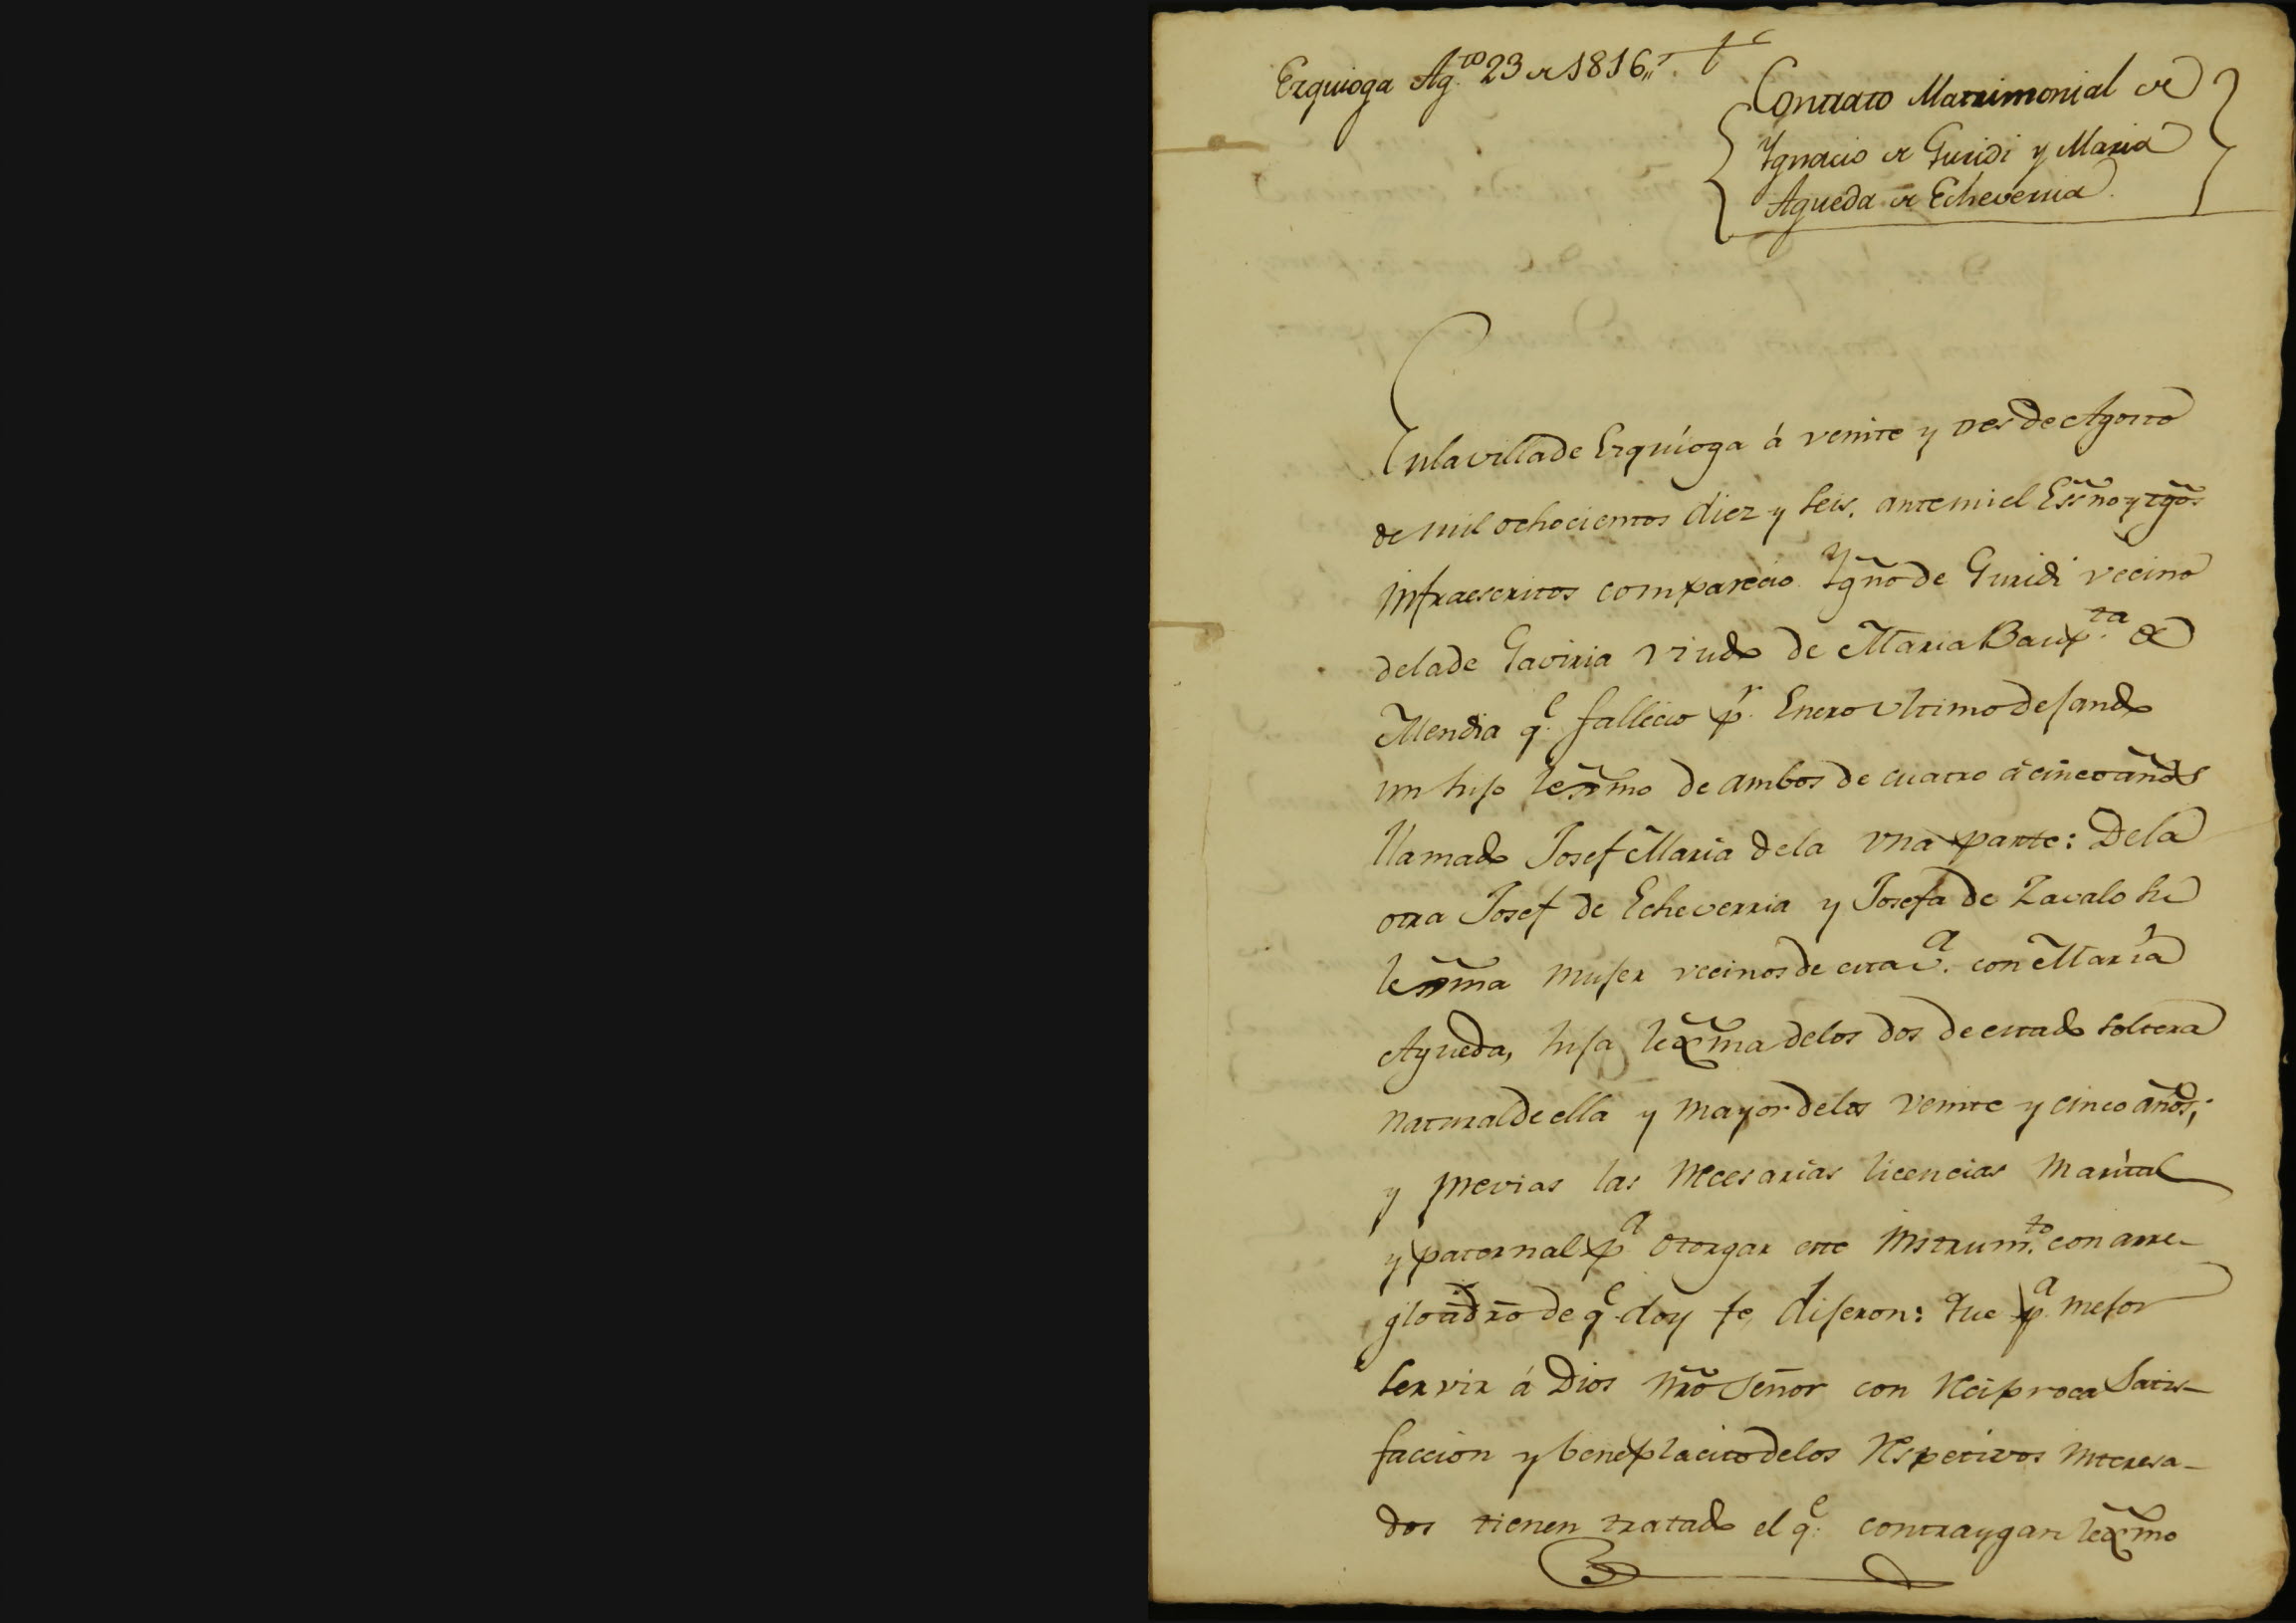 Ezquioga Ag.to 23 de 1816.
Contrato Matrimonial de
Ygnacio de Guridi y Maria
Agueda de Echeverria.
En la villa de Ezquioga á veinte y tres de Agosto
de mil ochocientos diez y seis, ante mi el Essño y tgõs
infraescritos comparecio Ygño de Guridi vecino
de la de Gaviria viudo de Maria Baup.ta de
Mendia q.e fallecio p.r Enero ultimo dejando
un hijo lexmo de ambos de cuatro á cinco años
llamado Josef Maria de la vna parte: De la
otra Josef de Echeverria y Josefa de Zavalo su
lexma mujer vecinos de esta v.a con María
Agueda, hija lexma de los dos de estado soltera
natural de ella y mayor de los veinte y cinco años,
y previas las necesarias licencias marital
y paternal p.a otorgar este instrum.to con arre-
glo a dro de q.e doy fe, dijeron: Que p.a mejor
servir á Dios nrõ Señor con reciproca satis-
faccion y beneplacito de los respetivos interesa-
dos tienen tratado el q.e contraygan lexmo